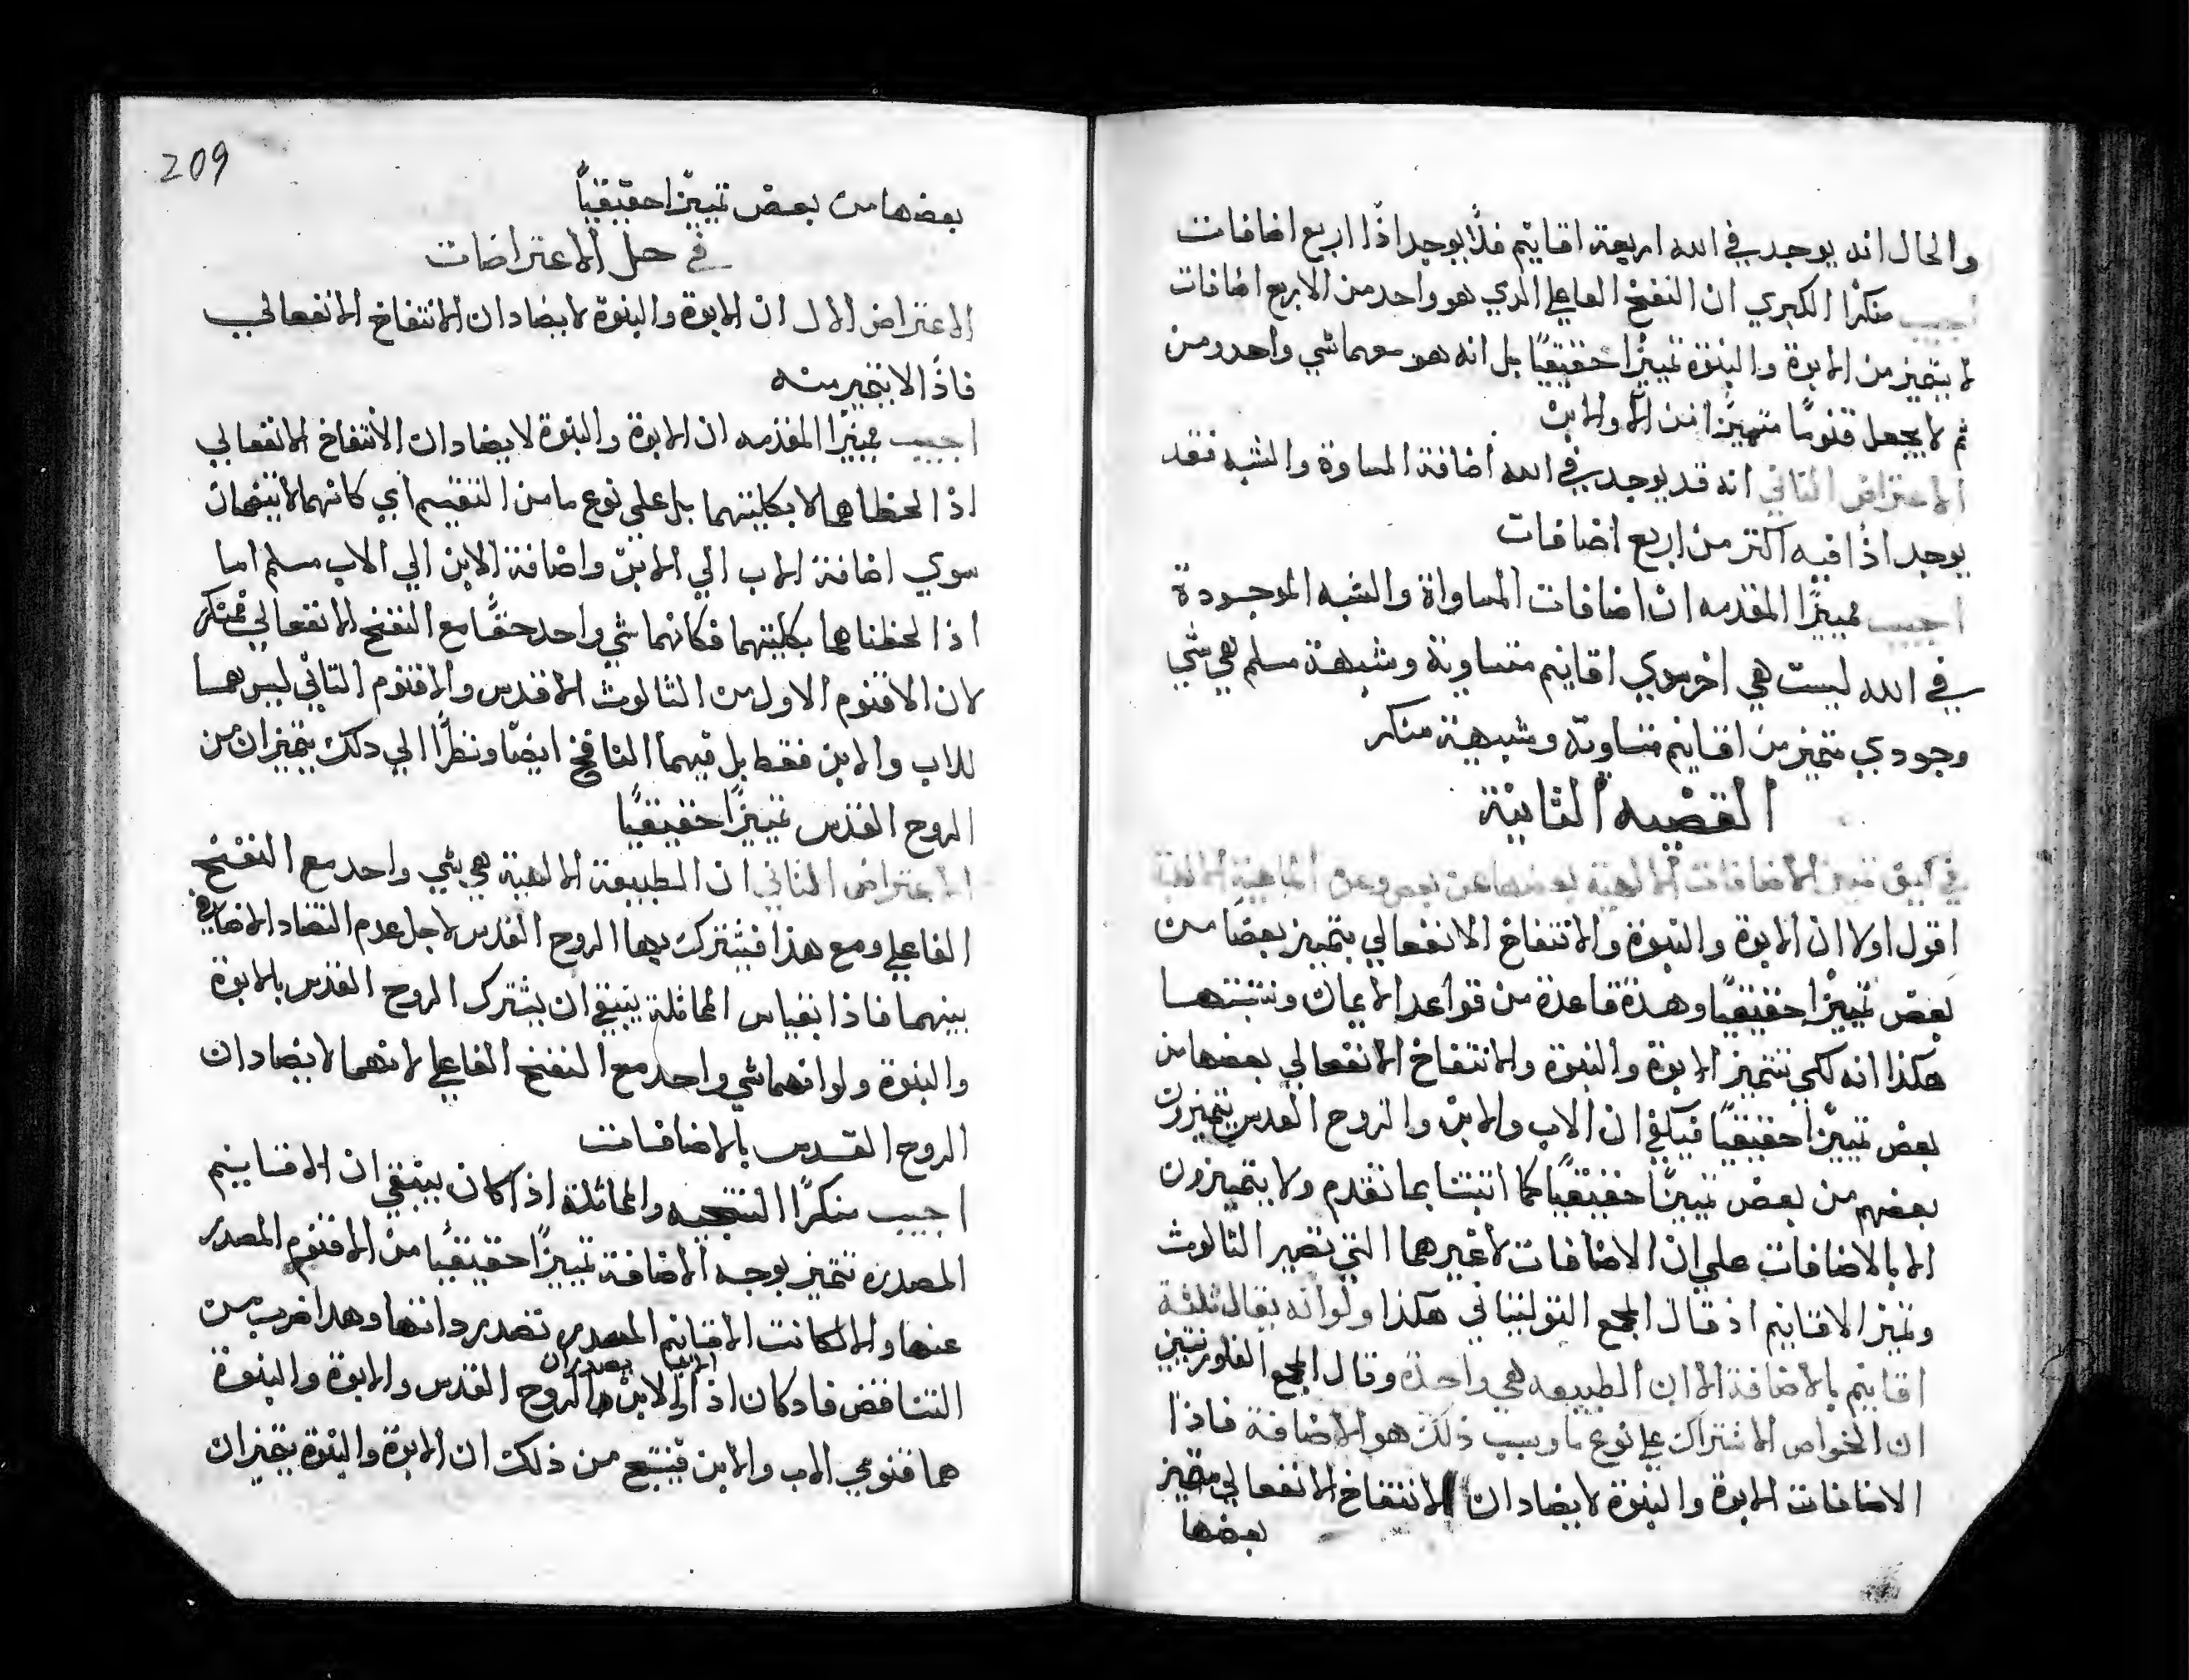 والحال انه يوجد في الله اربعة اقانيم فلا يوجد اذًا اربع اضافات
اجيب منكرًا الكبري ان النفخ الفاعلي الدي هو واحد من الاربع اضافات
لا يتميز من الابوة والبنوة تمييزًا حقيقيًا بل انه هو معهما شي واحد ومن
ثم لا يجعل قنومًا متميزًا من الاب والابن
الاعتراض الثاني انه قد يوجد في الله اضافة المساوة والشبه فقد
يوجد اذًا فيه اكتر من اربع اضافات
اجيب مميزًا المقدمه ان اضافات المساواة والشبه الموجودة
في الله ليست هي اخر سوي اقانيم متساوية وشبهة مسلم هي شي
وجودي متميز من اقانيم متساوية وشبيهة منكر
القضيه الثانية
في كيف تميز الاضافات الالهية بعضها عن بعض وعن الماهية الالهية
اقول اولا ان الابوة والبنوة والانتفاخ الانفعالي يتميز بعضًا من
بعض تمييزًا حقيقيًا وهذة قاعدة من قواعد الايمان ونتبتها
هكذا انه لكي تتميز الابوة والبنوة والانتفاخ الانفعالي بعضها من
بعض تمييزًا حقيقيًا فيكفي ان الاب والابن والروح القدس يتميزون
بعضهم من بعض تمييزًا حقيقيًا كما اتبتنا بما تقدم ولا يتميزون
الا بالاضافات علي ان الاضافات لا غيرها التي تصير الثالوث
وتميز الاقانيم اذ قال المجمع التوليتاني هكذا ولو انه يقال ثلثة
اقانيم بالاضافة الا ان الطبيعه هي واحدة وقال المجمع الفلورنتيني
ان الخواص الاشتراك علي نوع ما وسبب ذلك هو الاضافة فاذًا
الاضافات الابوة والبنوة لا يضادان الانتفاخ الانفعالي متميز
بعضها
209
بعضها من بعض تمييزًا حقيقيًا
في حل الاعتراضات
الاعتراض الال ان الابوة والبنوة لا يضادان الانتفاخ الانفعالي
فاذًا لا يتميز منه
اجيب مميزًا المقدمه ان الابوة والبنوة لا يضادان الانتفاخ الانفعالي
اذا لحظناهما لا بكليتهما بل علي نوع ما من التقسيم اي كانهما لا يتضمنان
سوي اضافة الاب الي الابن واضافة الابن الي الاب مسلم اما
اذا لحظناهما بكليتهما فكانهما شي واحد حقًا مع النفخ الانفعالي فمنكر
لان الاقنوم الاول من الثالوث الاقدس والاقنوم التاني ليس هما
للاب والابن فقط بل فيهما النافخ ايضًا ونظرًا الي دلك يتميزان من
الروح القدس تمييزًا حقيقيًا
الاعتراض الثاني ان الطبيعة الالهية هي شي واحد مع النفخ
الفاعلي ومع هذا فيشترك بها الروح القدس لاجل عدم التضاد الاضافي
بينهما فاذا بقياس المماثلة ينبغي ان يشترك الروح القدس بالابوة
والبنوة ولو انهما شي واحد مع النفخ الفاعلي لانهما لا يضادان
الروح القدس بالاضافات
اجيب منكرًا النتيجه والمماثلة اذ كان ينبغي ان الاقانيم
المصدره تتميز بوجه الاضافة تمييزًا حقيقيًا من الاقنوم المصدر
عنها والا لكانت الاقانيم المصدره تصدر داتها وهدا ضرب من
التناقض فاد كان اذًا الاب والابن يصدران الروح القدس والابوة والبنوة
هما قنومي الاب والابن فينتج من ذلك ان الابوة والبنوة يتميزان